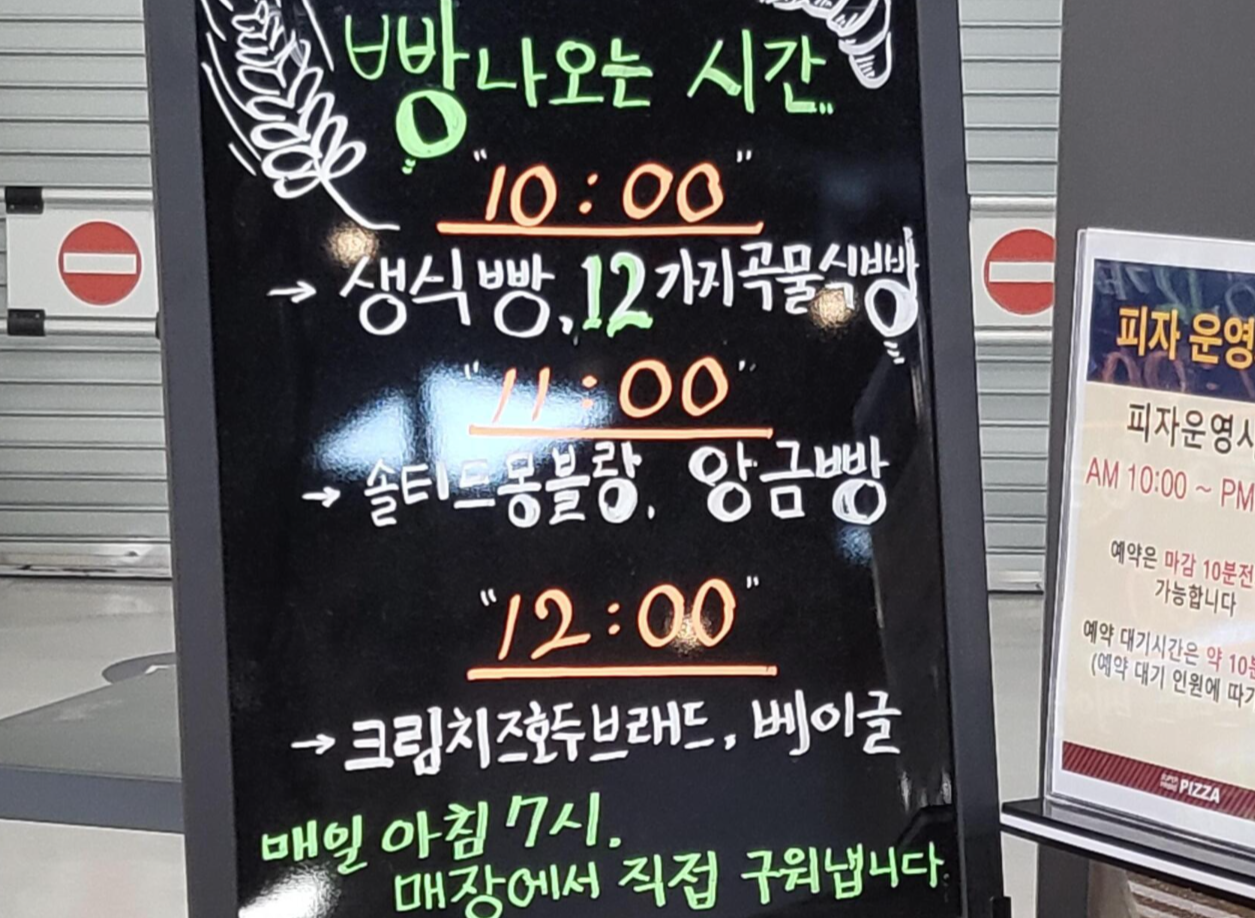 빵나오는 시간..
"10:00"
→ 생식빵, 12가지곡물식빵
"11:00"
→ 솔티드몽블랑, 앙금빵
"12:00"
→ 크림치즈호두브래드, 베이글
매일 아침 7시.
매장에서 직접 구워냅니다.
피자 운영
피자운영시
AM 10:00 ~ PM
예약은 마감 10분전
가능합니다
예약 대기시간은 약 10분
(예약 대기 인원에 따
PIZZA